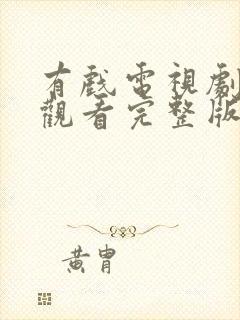 有戲電視劇
觀看完整版
黃胄